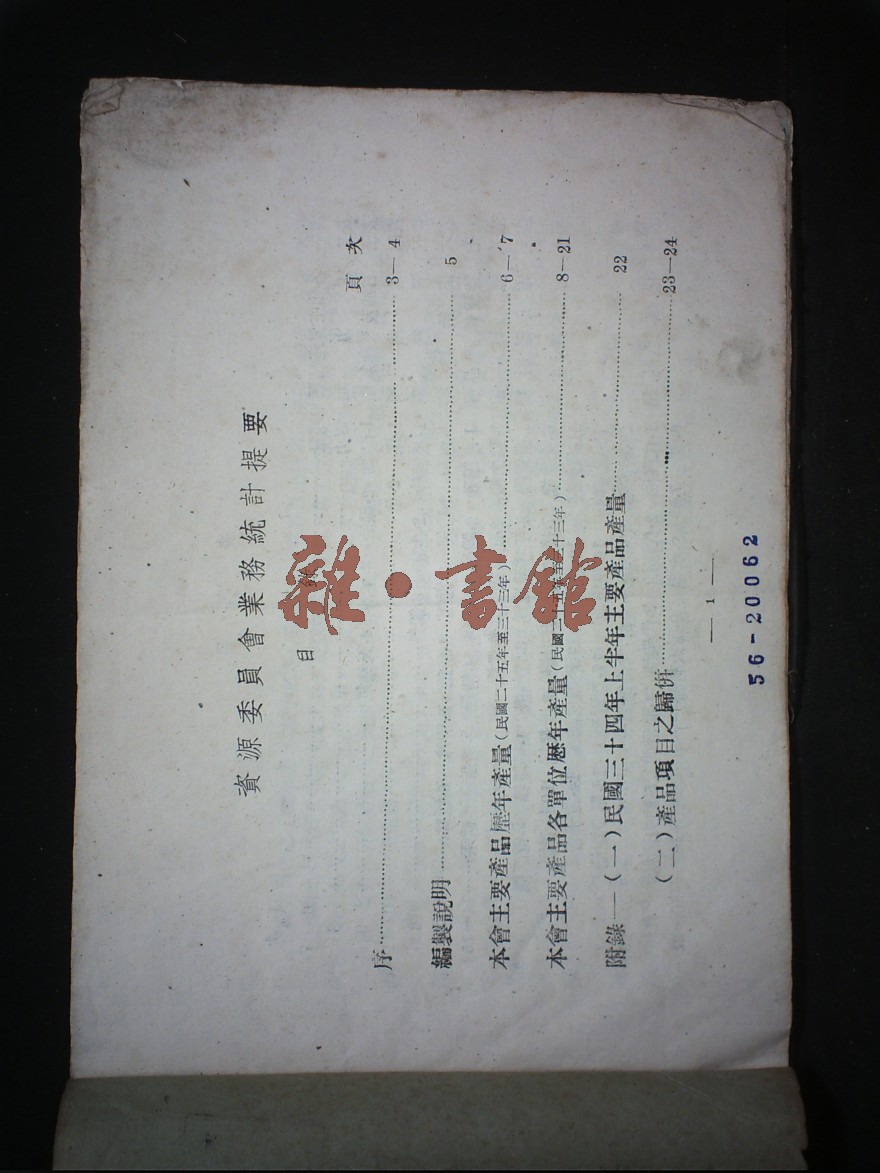 資源委員會業務統計提要
目
頁次
序……3—4
編製說明……5
本會主要產品歷年產量(民國二十五年至三十三年)……6—7
本會主要產品各單位歷年產量(民國二十五年至三十三年)……8—21
附錄—(一)民國三十四年上半年主要產品產量……22
(二)產品項目之歸併……23—24
— 1 —
56-20062